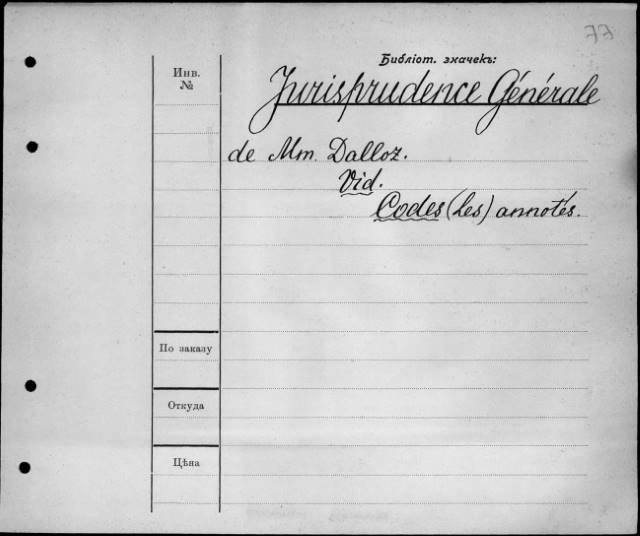 77
Библіот. значекъ:
Инв.
№
Jurisprudence Générale
de Mm. Dalloz.
Vid.
Codes (Les) annotés.
По заказу
Откуда
Цѣна